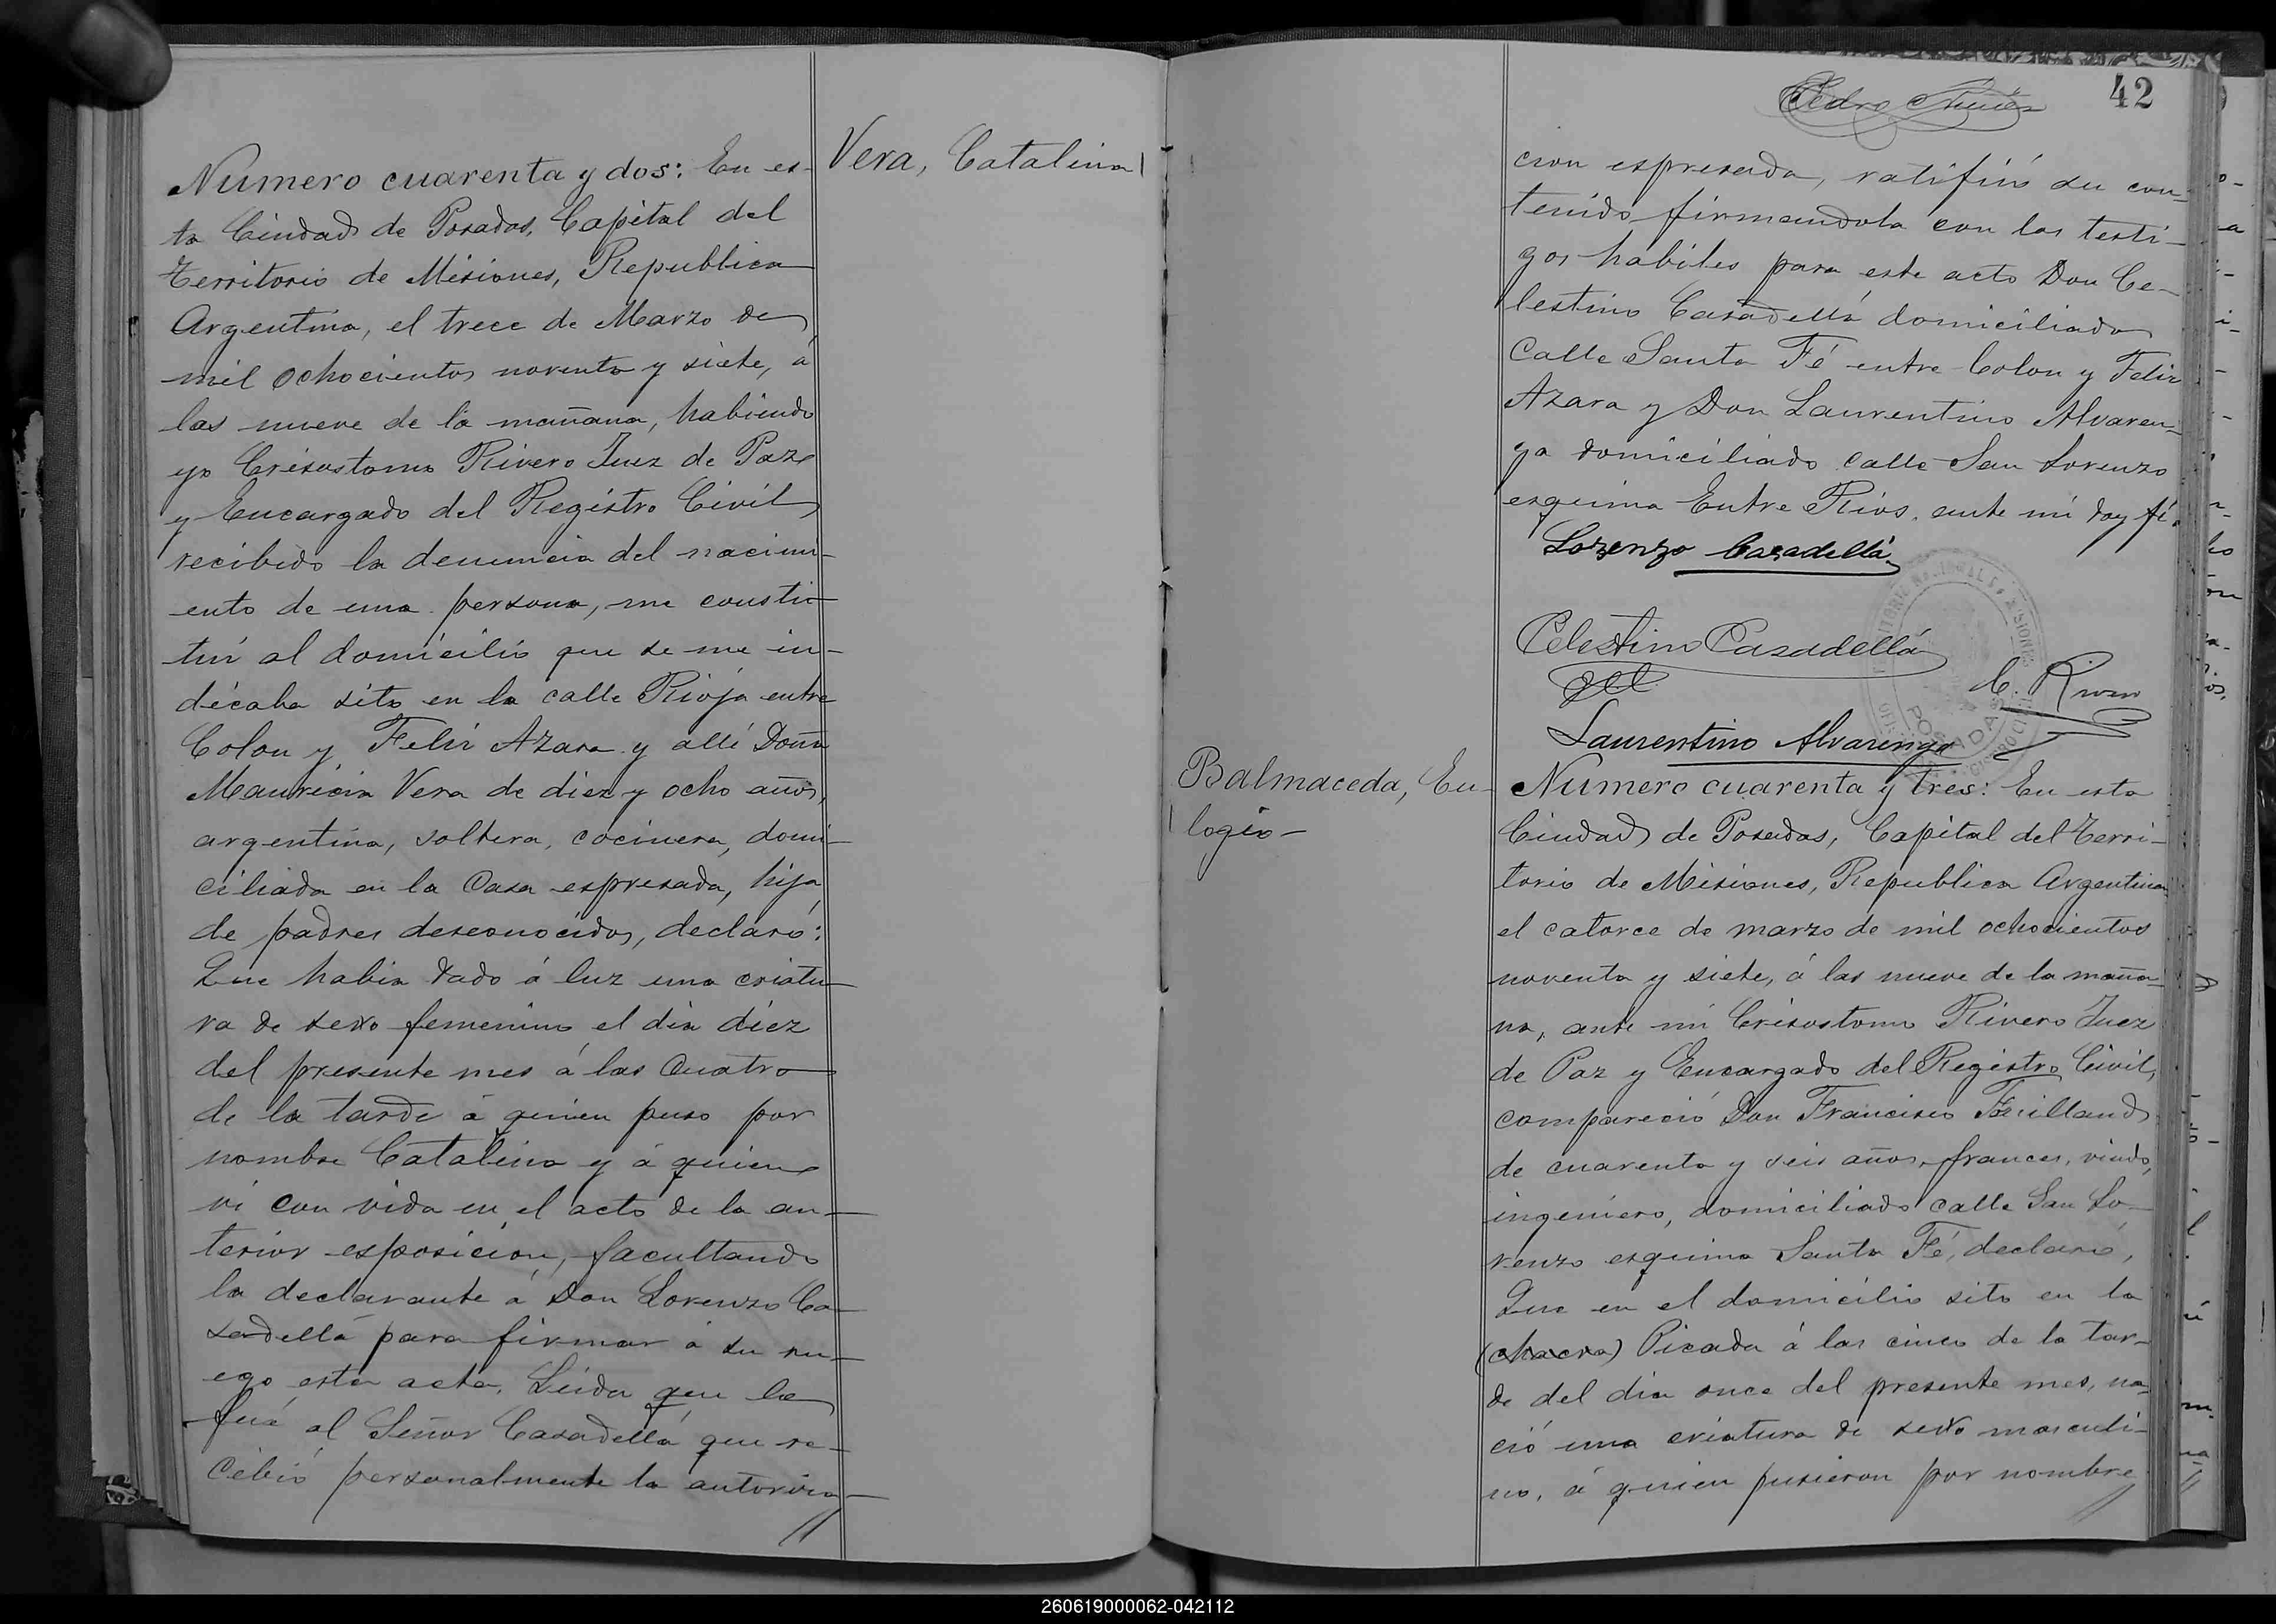 Vera, Catalina
Numero cuarenta y dos: En es-
ta Ciudad de Posadas, Capital del
Territorio de Misiones, Republica
Argentina, el trece de Marzo de
mil ochocientos noventa y siete, á
las nueve de la mañana, habiendo
yo Crisostomo Rivero Juez de Paz
y Encargado del Registro Civil,
recibido la denuncia del nacimi-
ento de una persona, me consti-
tui al domicilio que se me in-
dicaba sito en la calle Rioja entre
Colon y Felix Azara y allí Doña
Mauricia Vera de diez y ocho años,
argentina, soltera, cocinera, domi-
ciliada en la Casa espresada, hija
de padres desconocidos, declaró:
Que habia dado á luz una criatu-
ra de sexo femenino el dia diez
del presente mes á las cuatro
de la tarde á quien puso por
nombre Catalina y á quien
vi con vida en el acto de la an-
terior esposicion, facultando
la declarante á Don Lorenzo Ca-
sadellá para firmar á su ru-
ego esta acta. Leida que le
fué al Señor Casadellá que re-
cibió personalmente la autoriza-
42
cion espresada, ratificó su con-
tenido firmandola con los testi-
gos habiles para este acto Don Ce-
lestino Casadellá domiciliado
Calle Santa Fé entre Colon y Felix
Azara y Don Laurentino Alvaren-
ga domiciliado calle San Lorenzo
esquina Entre Rios, ante mi doy fé.
Lorenzo Casadellá
Celestino Casadellá
C. Rivero
Laurentino Alvarenga
Balmaceda, Eu-
logio-
Numero cuarenta y tres: En esta
Ciudad de Posadas, Capital del Terri-
torio de Misiones, Republica Argentina
el catorce de marzo de mil ochocientos
noventa y siete, á las nueve de la maña-
na, ante mi Crisostomo Rivero Juez
de Paz y Encargado del Registro Civil,
compareció Don Francisco
de cuarenta y seis años, frances, viudo,
ingeniero, domiciliado calle San Lo-
renzo esquina Santa Fé, declaró,
Que en el domicilio sito en la
(chacra) Picada á las cinco de la tar-
de del dia once del presente mes, na-
ció una criatura de sexo masculi-
no, á quien pusieron por nombre
260619000062-042112